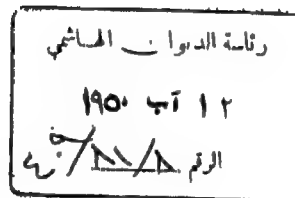 رئاسة الديوان الهاشمي
١٢ آب ١٩٥٠
الرقم